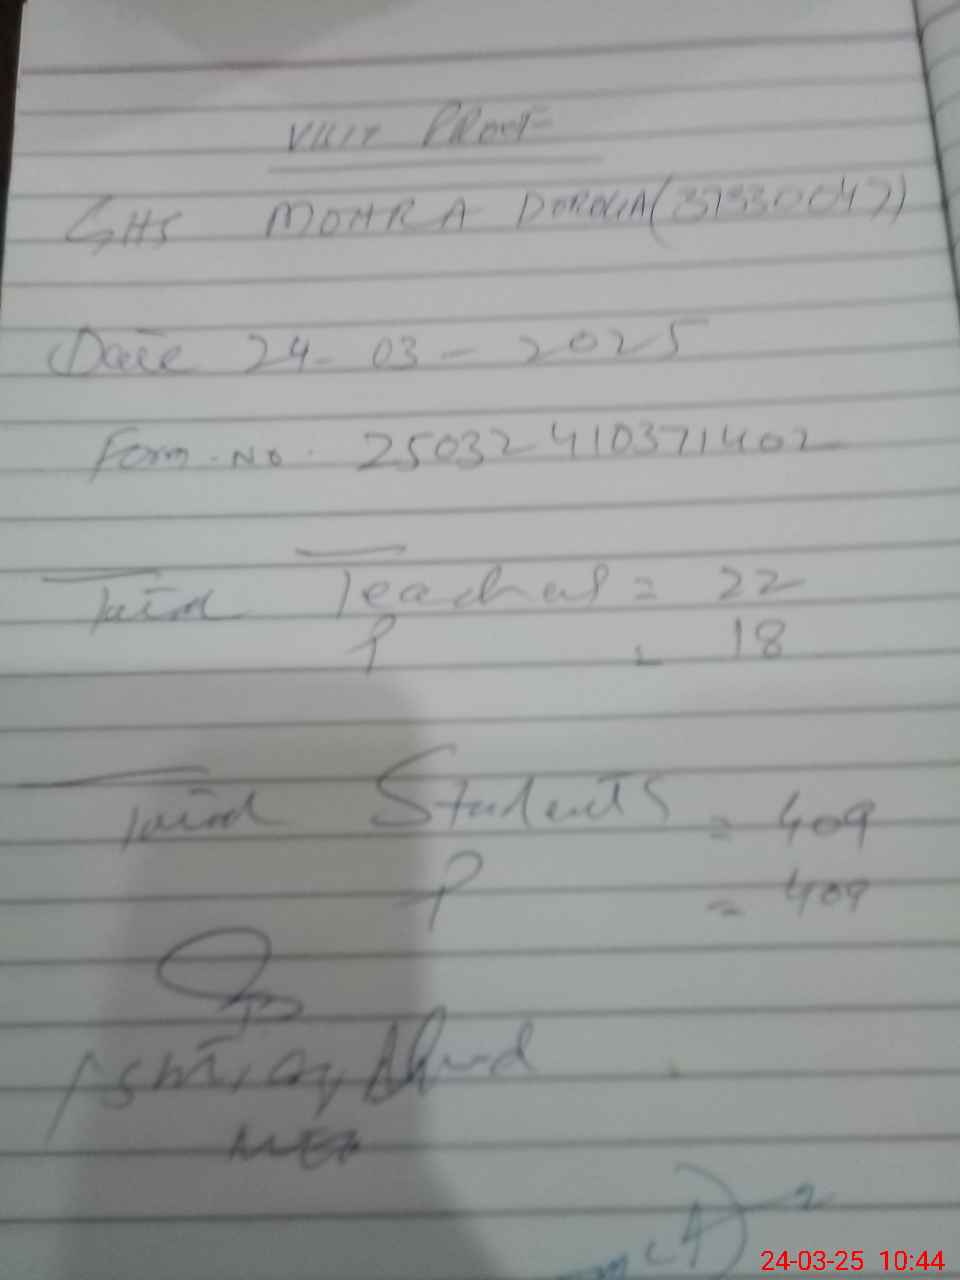 VISIT PROOF
GHS MOHRA DOROGIA (37330047)
Date 24-03-2025
Form.No. 250324110371402
Teachers = 22
P = 18
Students = 409
P = 409
Ishtiaq Ahmed
MEA
24-03-25 10:44